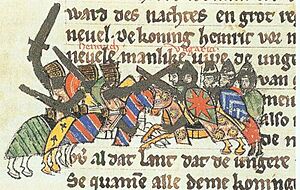 ward des nachtes en grot re
neuel. De koning heinric vor n
heinrich Vngaria
neuele manlike de unge
van
also
al dat lant dat de ungere
Se quamē alle deme koning